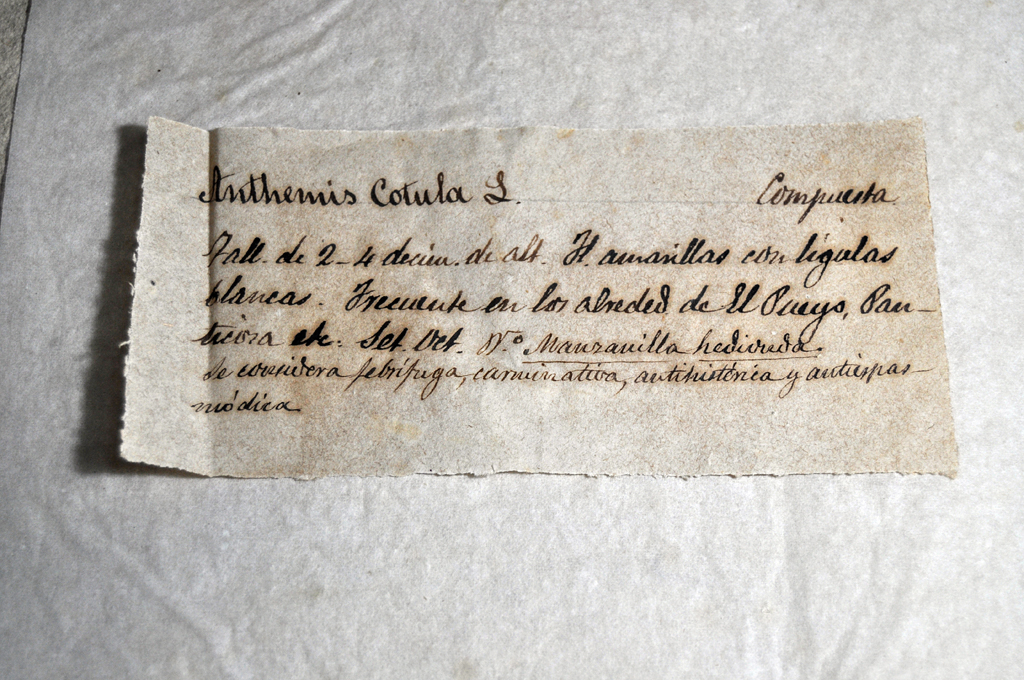 Anthemis Cotula L. Compuesta.
Tall. de 2-4 decim. de alt. Fl. amarillas con lígulas
blancas. Frecuente en los alreded. de El Pueyo, Pan-
ticosa etc. Set. Oct. Nº. Manzanilla hedionda.
Se considera febrífuga, carminativa, antihistérica y antiespas-
módica